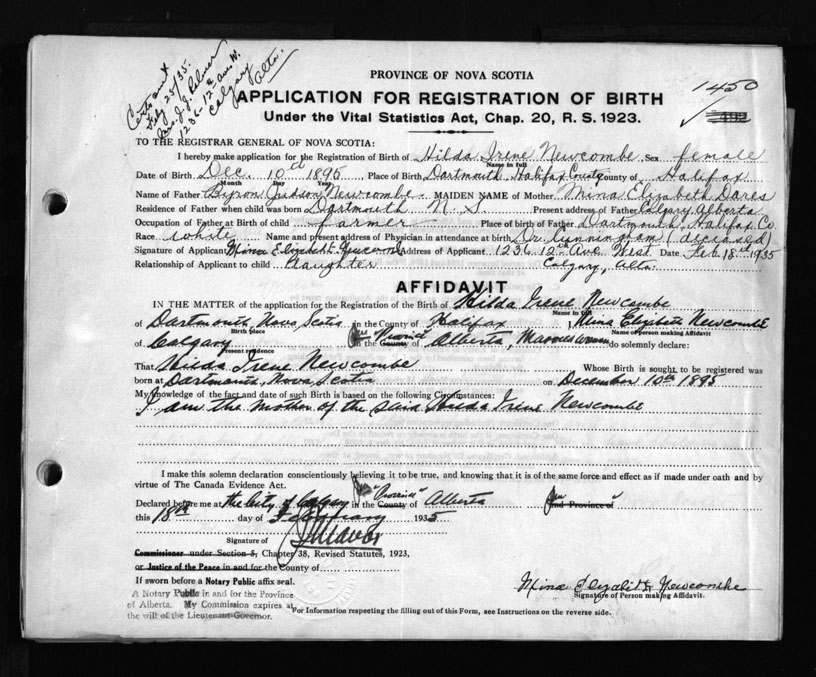 Cert sent
Feby 25/35.
Mrs. J. J.
1236-12th ave W.
Calgary
Alta.
1450
PROVINCE OF NOVA SCOTIA
APPLICATION FOR REGISTRATION OF BIRTH
Under the Vital Statistics Act, Chap. 20, R. S. 1923.
TO THE REGISTRAR GENERAL OF NOVA SCOTIA:
I hereby make application for the Registration of Birth of Hilda Irene Newcombe Sex female
Name in full
Date of Birth Dec. 10th 1895 Place of Birth Dartmouth, Halifax County County of Halifax
Month Day Year
Name of Father Byron Judson Newcombe. MAIDEN NAME of Mother Mina Elizabeth Dares
Residence of Father when child was born Dartmouth N. S. Present address of Father Calgary Alberta
Occupation of Father at Birth of child farmer Place of birth of Father Dartmouth, Halifax Co
Race white Name and present address of Physician in attendance at birth Dr. Cunningham (deceased)
Signature of Applicant Mina Elizabeth Newcomb Address of Applicant 1236 12th Ave West Date Feb 18th 1935
Relationship of Applicant to child daughter Calgary, Alta.
AFFIDAVIT
IN THE MATTER of the application for the Registration of the Birth of Hilda Irene Newcombe
Name in full
of Dartmouth, Nova Scotia in the County of Halifax I, Mina Elizabeth Newcombe
Birth place Name of Person making Affidavit
of Calgary in the County "Province" of Alberta, Married woman do solemnly declare:
Present residence
That Hilda Irene Newcombe Whose Birth is sought to be registered was
born at Dartmouth, Nova Scotia on December 10th 1895
My knowledge of the fact and date of such Birth is based on the following Circumstances:
I am the mother of the said Hilda Irene Newcombe
I make this solemn declaration conscientiously believing it to be true, and knowing that it is of the same force and effect as if made under oath and by
virtue of The Canada Evidence Act.
Declared before me at the City of Calgary in the County "Province" of Alberta and Province of
this 18th day of February 1935
Signature of
Commissioner under Section 5, Chapter 38, Revised Statutes, 1923,
or Justice of the Peace in and for the County of
If sworn before a Notary Public affix seal.
Mina Elizabeth Newcombe
Signature of Person making Affidavit.
A Notary Public in and for the Province
of Alberta. My Commission expires at
the will of the Lieutenant-Governor.
For Information respecting the filling out of this Form, see Instructions on the reverse side.